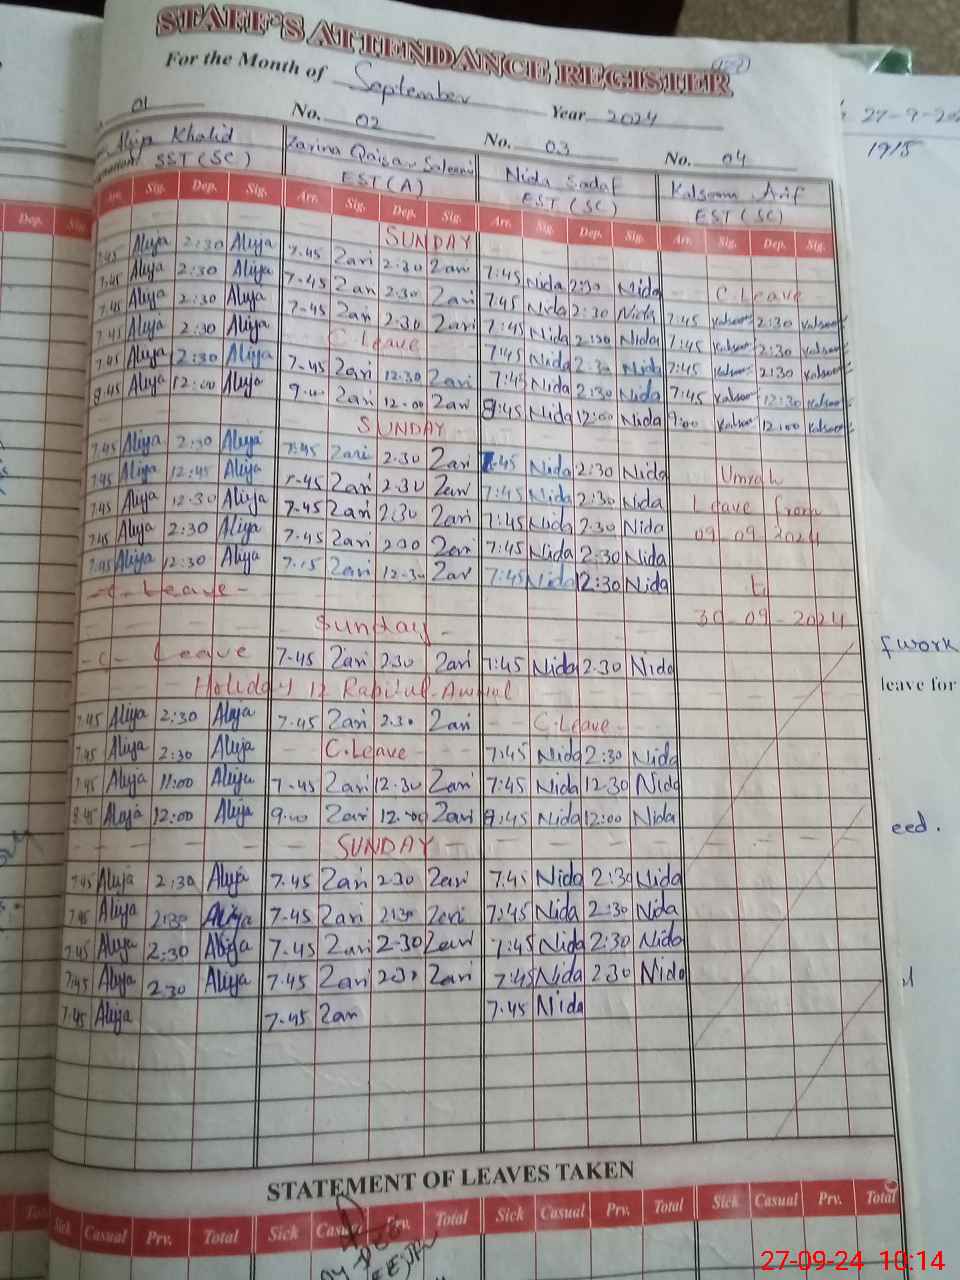 STAFF'S ATTENDANCE REGISTER
For the Month of September Year 2024
01 No. 02 No. 03 No. 04
Aliya Khalid Zarina Qaisar Nida Sadaf Kalsoom Arif
SST (SC) EST (A) EST (SC) EST (SC)
Arr. Sig. Dep. Sig. Arr. Sig. Dep. Sig. Arr. Sig. Dep. Sig. Arr. Sig. Dep. Sig.
SUNDAY
7:45 Aliya 2:30 Aliya 7.45 Zari 2.30 Zari 7:45 Nida 2:30 Nida C.Leave
7:45 Aliya 2:30 Aliya 7.45 Zari 2.30 Zari 7:45 Nida 2:30 Nida 7:45 Kalsoom 2:30 Kalsoom
7:45 Aliya 2:30 Aliya 7.45 Zari 2.30 Zari 7:45 Nida 2:30 Nida 7:45 Kalsoom 2:30 Kalsoom
7:45 Aliya 2:30 Aliya C.Leave 7:45 Nida 2:30 Nida 7:45 Kalsoom 2:30 Kalsoom
7:45 Aliya 2:30 Aliya 7.45 Zari 12.30 Zari 7:45 Nida 2:30 Nida 7:45 Kalsoom 12:30 Kalsoom
8:45 Aliya 12:00 Aliya 9.00 Zari 12.00 Zari 8:45 Nida 12:00 Nida 9:00 Kalsoom 12:00 Kalsoom
SUNDAY
7:45 Aliya 2:30 Aliya 7:45 Zari 2.30 Zari 7:45 Nida 2:30 Nida Umrah
7:45 Aliya 12:45 Aliya 7.45 Zari 2.30 Zari 7:45 Nida 2:30 Nida Leave from
7:45 Aliya 12:30 Aliya 7.45 Zari 2:30 Zari 7:45 Nida 2:30 Nida 09 09 2024
7:45 Aliya 2:30 Aliya 7.45 Zari 2.30 Zari 7:45 Nida 2:30 Nida
7:45 Aliya 12:30 Aliya 7.15 Zari 12.30 Zari 7:45 Nida 12:30 Nida t
-C-Leave- 30-09-2024
Sunday
-C-Leave 7.45 Zari 2.30 Zari 7:45 Nida 2.30 Nida
Holiday 12 Rabiul-Awal
7:45 Aliya 2:30 Aliya 7.45 Zari 2.30 Zari C.Leave
7:45 Aliya 2:30 Aliya C.Leave 7:45 Nida 2:30 Nida
7:45 Aliya 11:00 Aliya 7.45 Zari 12:30 Zari 7:45 Nida 12:30 Nida
8:45 Aliya 12:00 Aliya 9.00 Zari 12.00 Zari 8:45 Nida 12:00 Nida
SUNDAY
7:45 Aliya 2:30 Aliya 7.45 Zari 2.30 Zari 7:45 Nida 2:30 Nida
7:45 Aliya 2:30 Aliya 7.45 Zari 2:30 Zari 7:45 Nida 2:30 Nida
7:45 Aliya 2:30 Aliya 7.45 Zari 2.30 Zari 7:45 Nida 2:30 Nida
7:45 Aliya 2:30 Aliya 7.45 Zari 2.30 Zari 7:45 Nida 2:30 Nida
7:45 Aliya 7.45 Zari 7:45 Nida
STATEMENT OF LEAVES TAKEN
Sick Casual Prv. Total Sick Casual Prv. Total Sick Casual Prv. Total Sick Casual Prv. Total
Dep.
27-9-20
1915
f work
leave for
eed.
27-09-24 10:14